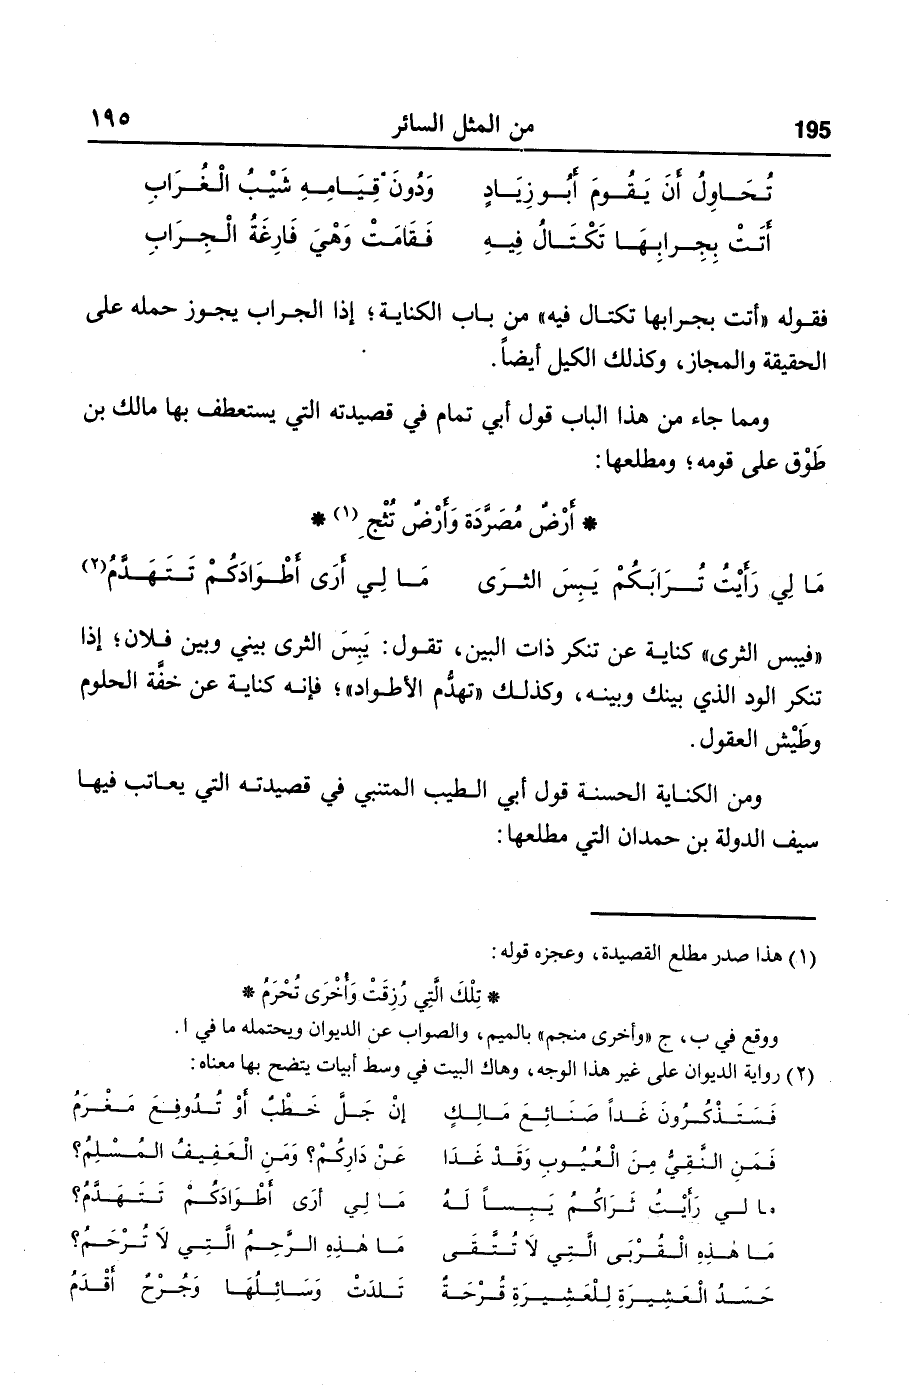 ١٩٥ من المثل السائر 195
تُحَاوِلُ أَنَ يَقُومَ أَبُو زِيَادٍ وَدُونَ قِيَامِهِ شَيْبُ الْغُرَابِ
أَتَتْ بِجِرابِهَا تَكْتَالُ فِيهِ فَقَامَتْ وَهْيَ فَارِغَةُ الْجِرَابِ
فقوله «أتت بجرابها تكتال فيه» من باب الكناية؛ إذا الجراب يجوز حمله على
الحقيقة والمجاز، وكذلك الكيل أيضاً.
ومما جاء من هذا الباب قول أبي تمام في قصيدته التي يستعطف بها مالك بن
طَوْق على قومه؛ ومطلعها:
* أَرْضٌ مُصَرَّدَة وَأَرْضٌ تُثْجِ (١) *
مَا لِي رَأَيْتُ تُرَابَكُمْ يَبِسَ الثَرَى مَا لِي أَرَى أَطْوَادَكُمْ تَتَهَدَّمُ(٢)
«فيبس الثرى» كناية عن تنكر ذات البين، تقول: يَبِسَ الثرى بيني وبين فلان؛ إذا
تنكر الود الذي بينك وبينه، وكذلك «تهدُّم الأطواد»؛ فإنه كناية عن خفَّة الحلوم
وطَيْش العقول.
ومن الكناية الحسنة قول أبي الطيب المتنبي في قصيدته التي يعاتب فيها
سيف الدولة بن حمدان التي مطلعها:
(١) هذا صدر مطلع القصيدة، وعجزه قوله:
* تِلْكَ الَّتِي رُزِقَتْ وَأُخْرَى تُحْرَمُ *
ووقع في ب، ج «وأخرى منجم» بالميم، والصواب عن الديوان ويحتمله ما في ا.
(٢) رواية الديوان على غير هذا الوجه، وهاك البيت في وسط أبيات يتضح بها معناه:
فَسَتَذْكُرُونَ غَداً صَنَائِعَ مَالِكٍ إنْ جَلَّ خَطْبٌ أَوْ تُدُوفِعَ مَغْرَمُ
فَمَنِ النَّقِيُّ مِنَ الْعُيُوبِ وَقَدْ غَدَا عَنْ دَارِكُمْ؟ وَمَنِ الْعَفِيفُ الْمُسْلِمُ؟
ما لي رَأَيْتُ ثَرَاكُمُ يَبِساً لَهُ مَا لِي أَرَى أَطْوَادَكُمْ تَتَهَدَّمُ؟
مَا هَذِهِ الْقُرْبَى الَّتِي لَا تُتَّقَى مَا هَذِهِ الرَّحِمُ الَّتِي لَا تُرْحَمُ؟
حَسَدُ الْعَشِيرَةِ لِلْعَشِيرَةِ قُرْحَةٌ تَلَدَتْ وَسَائِلُهَا وَجُرْحٌ أَقْدَمُ